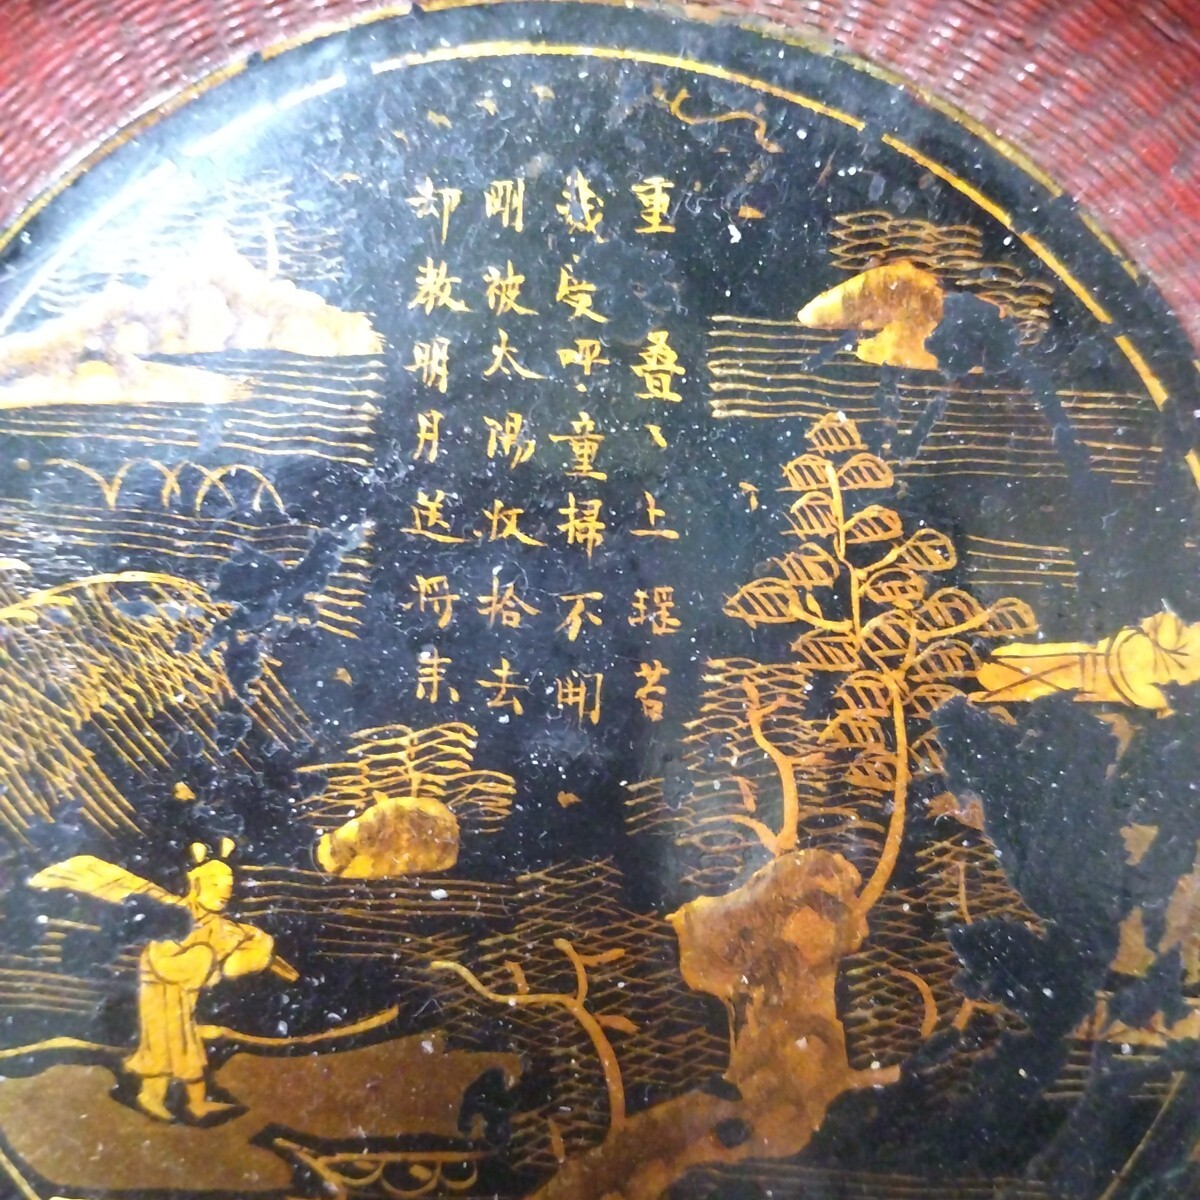 重疊〻上瑶苔
幾度呼童掃不開
剛被太陽收拾去
却教明月送将来